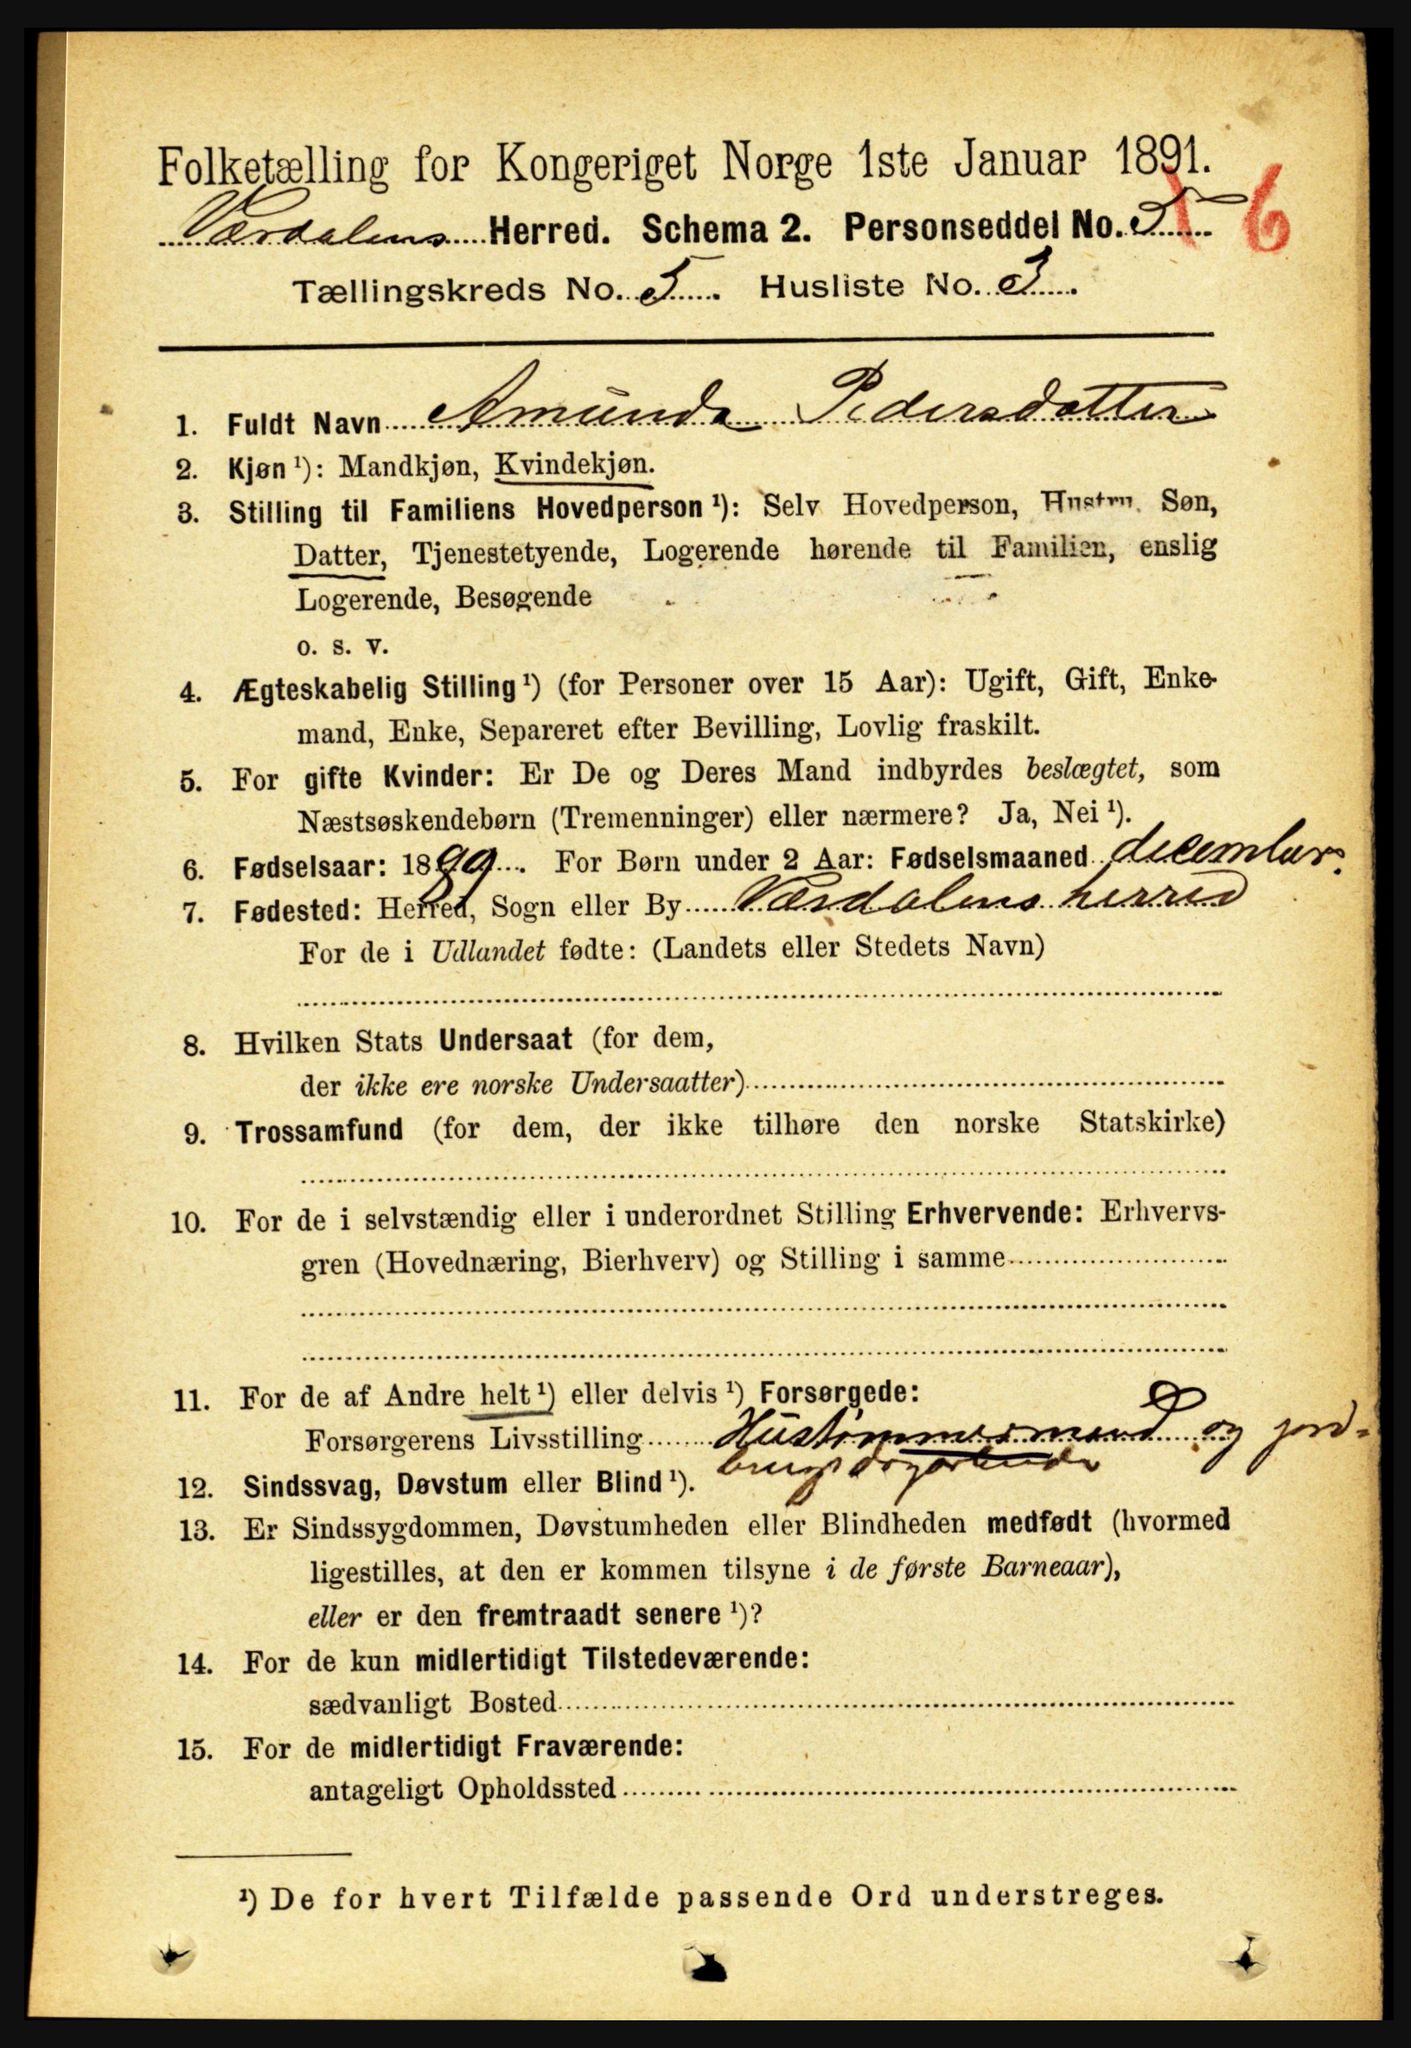 Folketælling for Kongeriget Norge 1ste Januar 1891.
Værdalens Herred. Schema 2. Personseddel No. 5 6
Tællingskreds No. 5. Husliste No. 3.
1. Fuldt Navn Amunda Pedersdatter
2. Kjøn ¹): Mandkjøn, Kvindekjøn.
3. Stilling til Familiens Hovedperson ¹): Selv Hovedperson, Hustru, Søn,
Datter, Tjenestetyende, Logerende hørende til Familien, enslig
Logerende, Besøgende
o. s. v.
4. Ægteskabelig Stilling ¹) (for Personer over 15 Aar): Ugift, Gift, Enke-
mand, Enke, Separeret efter Bevilling, Lovlig fraskilt.
5. For gifte Kvinder: Er De og Deres Mand indbyrdes beslægtet, som
Næstsøskendebørn (Tremenninger) eller nærmere? Ja, Nei ¹).
6. Fødselsaar: 1890. For Børn under 2 Aar: Fødselsmaaned december.
7. Fødested: Herred, Sogn eller By Værdalens herred
For de i Udlandet fødte: (Landets eller Stedets Navn)
8. Hvilken Stats Undersaat (for dem,
der ikke ere norske Undersaatter)
9. Trossamfund (for dem, der ikke tilhøre den norske Statskirke)
10. For de i selvstændig eller i underordnet Stilling Erhvervende: Erhvervs-
gren (Hovednæring, Bierhverv) og Stilling i samme
11. For de af Andre helt ¹) eller delvis ¹) Forsørgede:
Forsørgerens Livsstilling Hustømmermand og jord-
brugsdagarbeider
12. Sindssvag, Døvstum eller Blind ¹).
13. Er Sindssygdommen, Døvstumheden eller Blindheden medfødt (hvormed
ligestilles, at den er kommen tilsyne i de første Barneaar),
eller er den fremtraadt senere ¹)?
14. For de kun midlertidigt Tilstedeværende:
sædvanligt Bosted
15. For de midlertidigt Fraværende:
antageligt Opholdssted
¹) De for hvert Tilfælde passende Ord understreges.